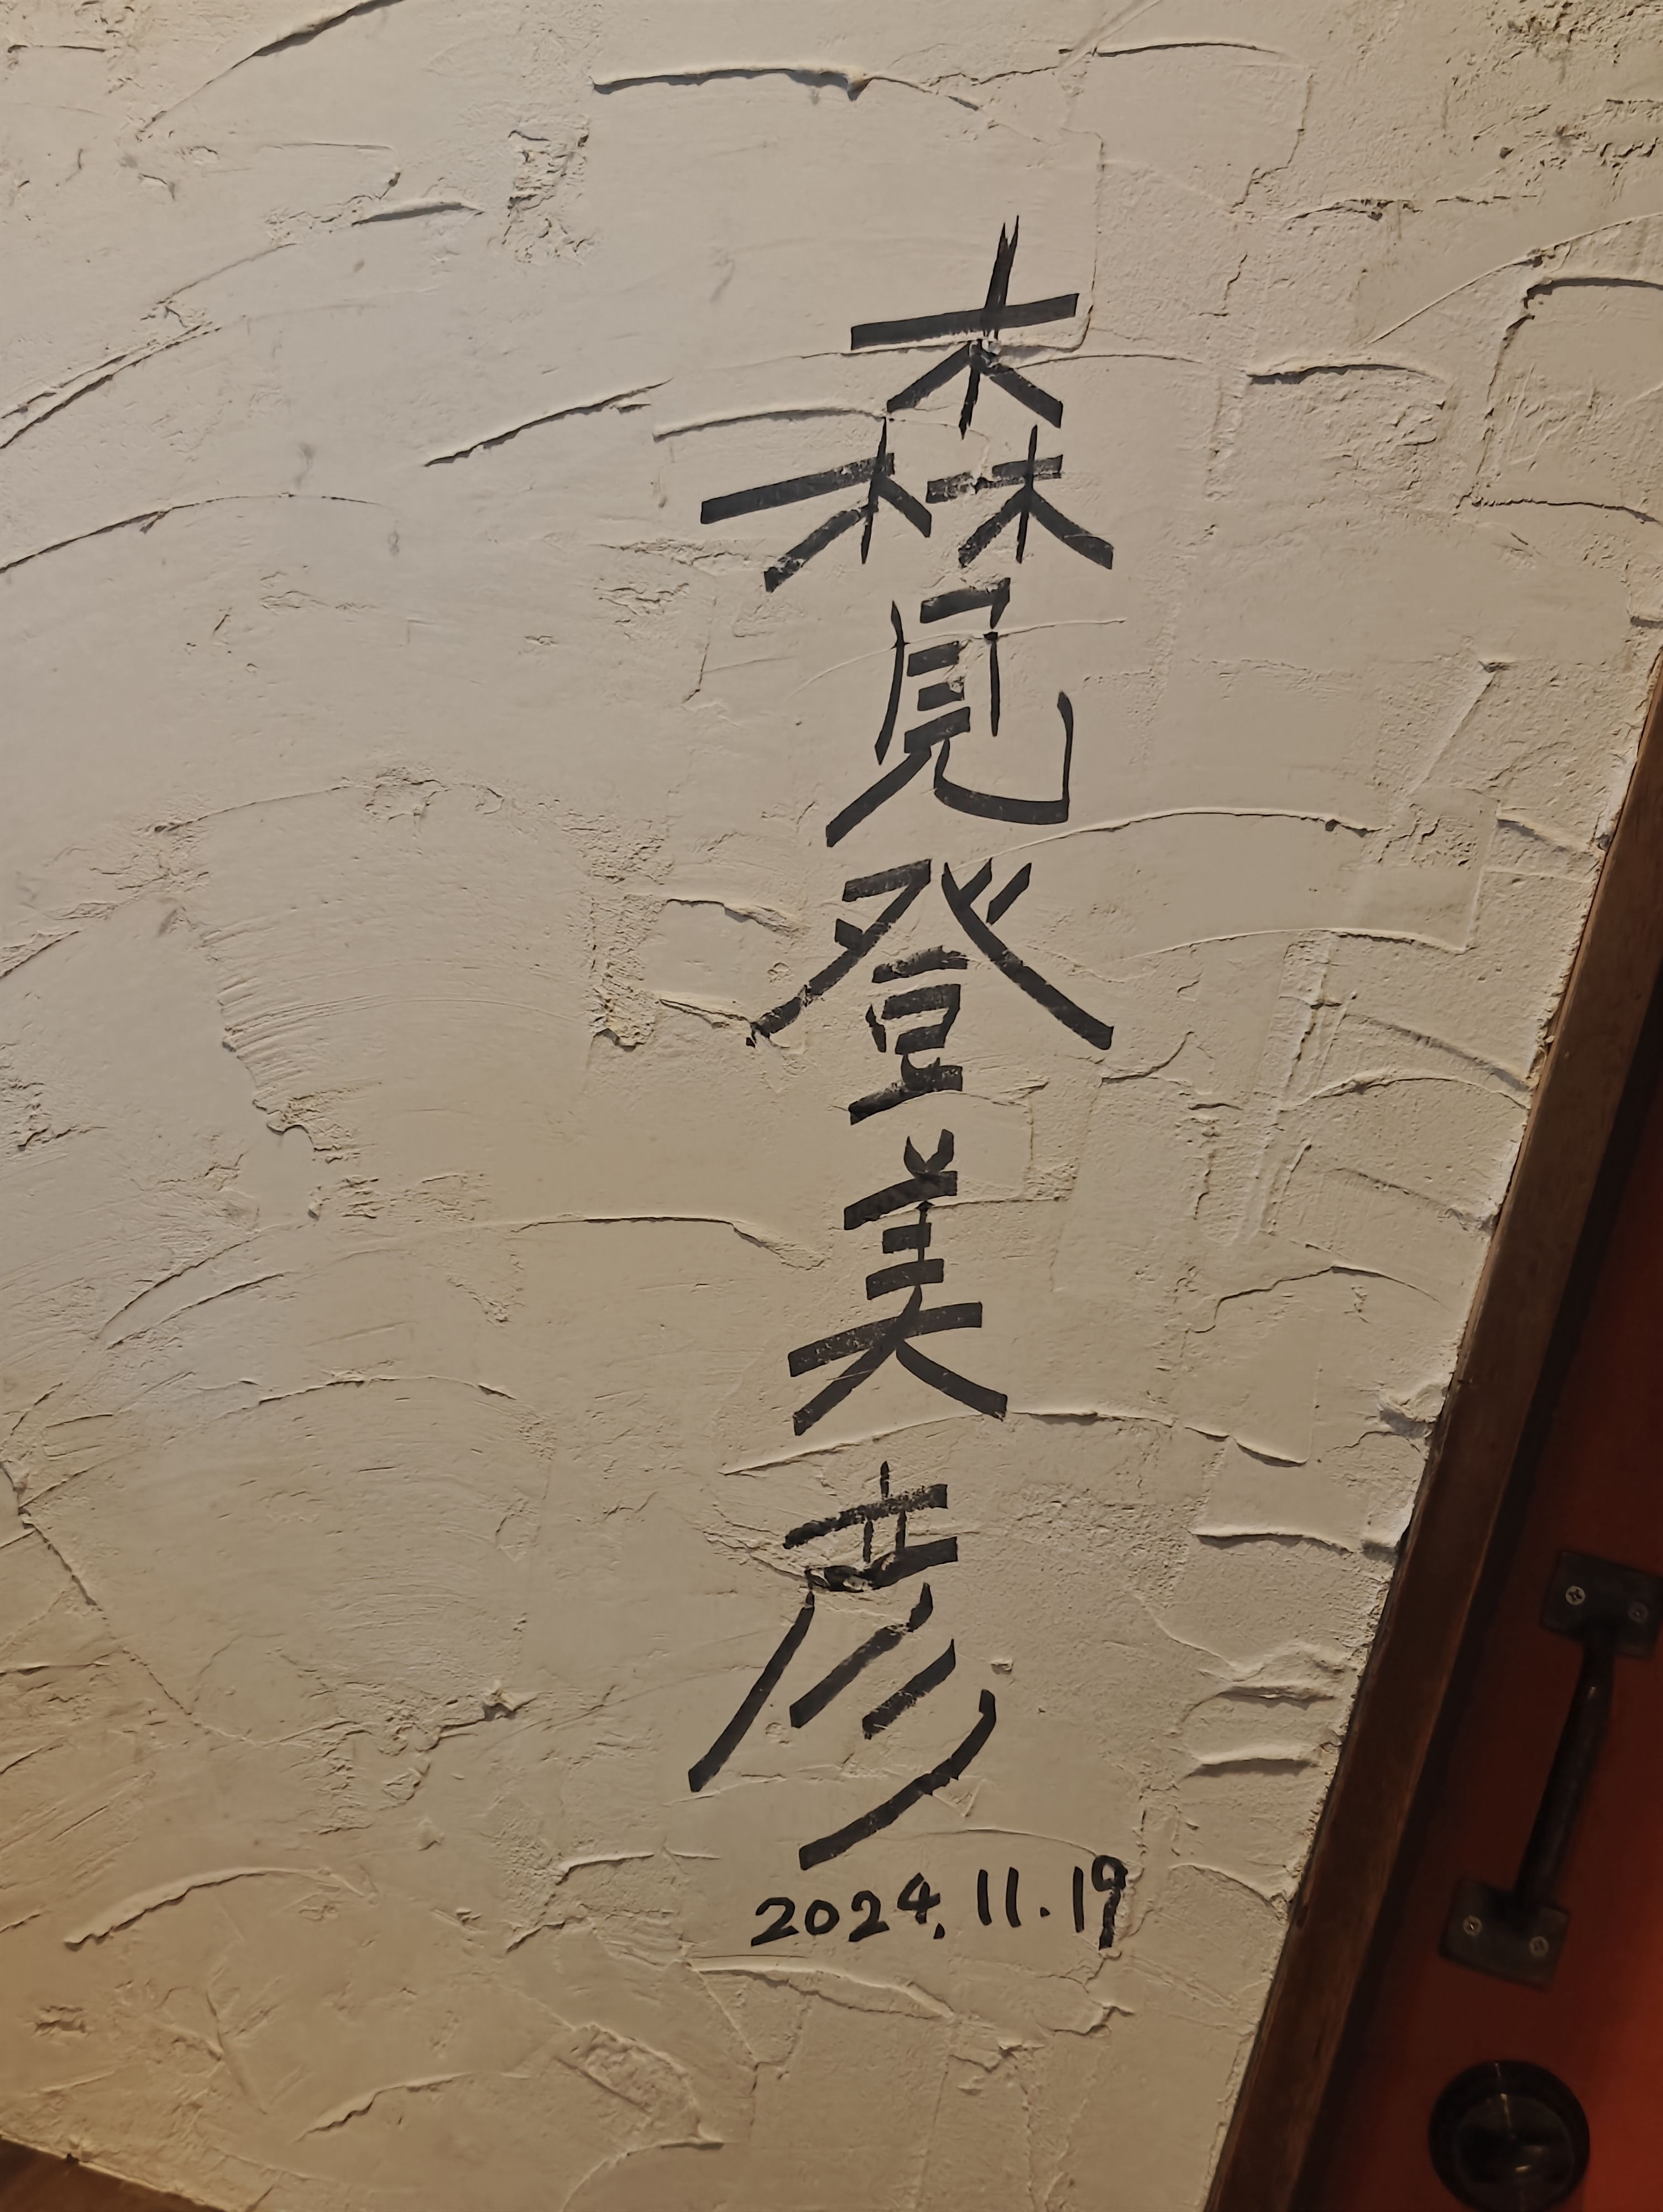 森見登美彦
2024.11.19